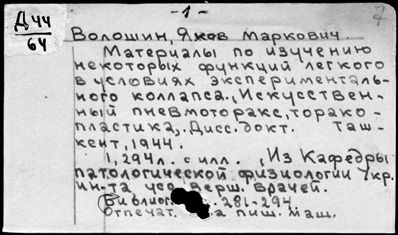 Д 44
64
- 1 -
7
Волошин, Яков Маркович.
Материалы по изучению
некоторых функций легкого
в условиях эксперименталь-
ного коллапса., Искусствен-
ный пневмоторакс, торако-
пластика,. Дисс. докт. Таш-
кент, 1944.
1, 294 л. с илл. , Из Кафедры
патологической физиологии Укр.
ин-та усо верш. врачей.
Библиог : 281-294.
Отпечат. а пиш. маш.